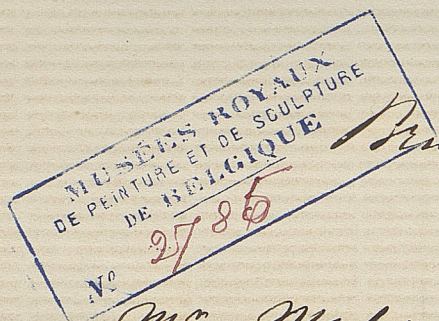 MUSÉES ROYAUX
DE PEINTURE ET DE SCULPTURE
DE BELGIQUE
Nº 2785